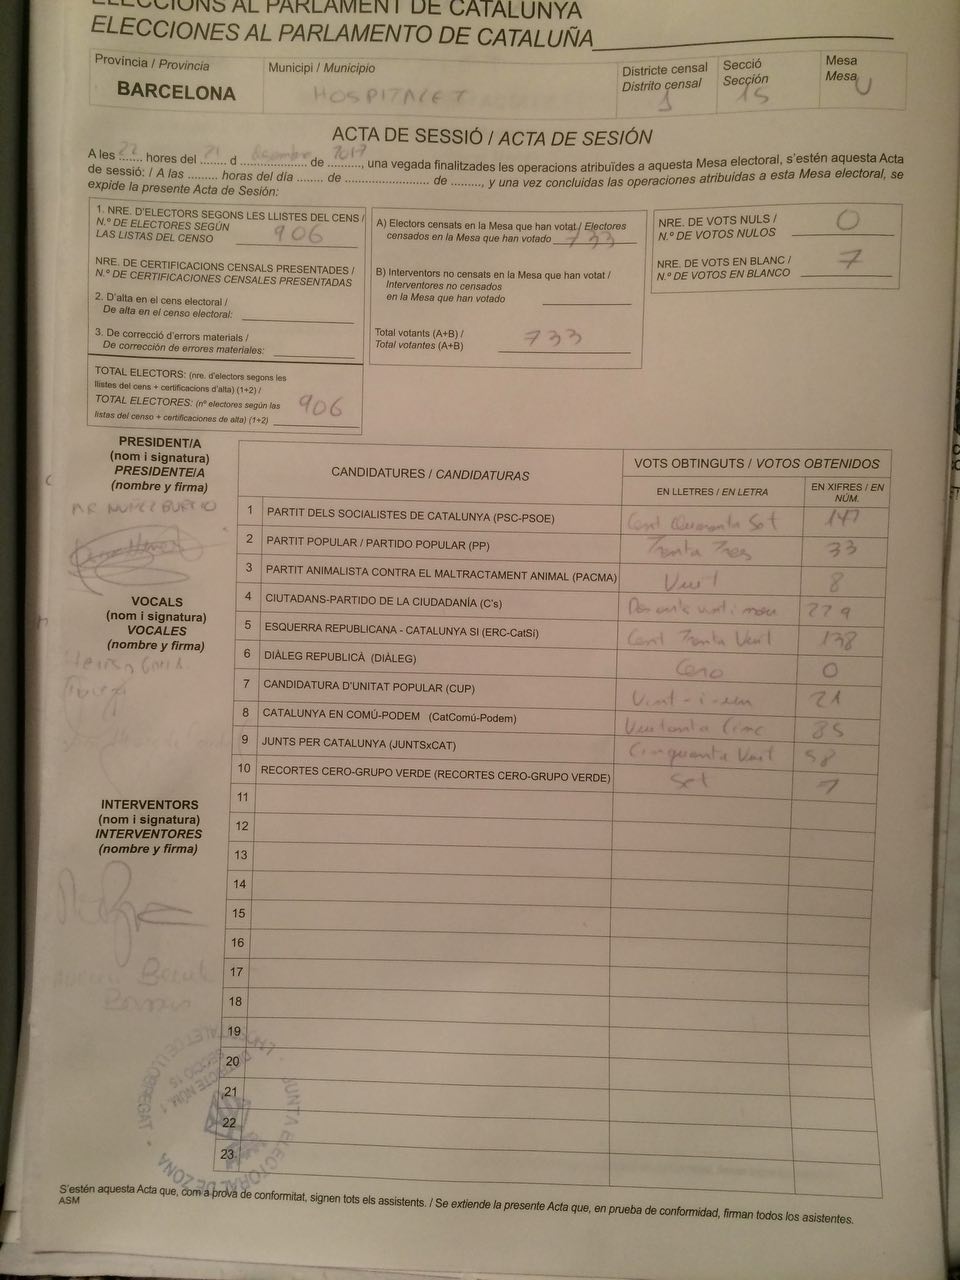 ELECCIONS AL PARLAMENT DE CATALUNYA
ELECCIONES AL PARLAMENTO DE CATALUÑA
Província / Provincia
BARCELONA
Municipi / Municipio
HOSPITALET
Districte censal
Distrito censal
1
Secció
Sección
15
Mesa
Mesa
U
ACTA DE SESSIÓ / ACTA DE SESIÓN
A les 22 hores del 21 d desembre de 2017, una vegada finalitzades les operacions atribuïdes a aquesta Mesa electoral, s'estén aquesta Acta
de sessió: / A las ......... horas del día ........ de ......................... de ........., y una vez concluidas las operaciones atribuidas a esta Mesa electoral, se
expide la presente Acta de Sesión:
1. NRE. D'ELECTORS SEGONS LES LLISTES DEL CENS /
N.º DE ELECTORES SEGÚN
LAS LISTAS DEL CENSO 906
NRE. DE CERTIFICACIONS CENSALS PRESENTADES /
N.º DE CERTIFICACIONES CENSALES PRESENTADAS
2. D'alta en el cens electoral /
De alta en el censo electoral:
3. De correcció d'errors materials /
De corrección de errores materiales:
TOTAL ELECTORS: (nre. d'electors segons les
llistes del cens + certificacions d'alta) (1+2) /
TOTAL ELECTORES: (nº electores según las
listas del censo + certificaciones de alta) (1+2) 906
A) Electors censats en la Mesa que han votat / Electores
censados en la Mesa que han votado 733
B) Interventors no censats en la Mesa que han votat /
Interventores no censados
en la Mesa que han votado
Total votants (A+B) /
Total votantes (A+B) 733
NRE. DE VOTS NULS /
N.º DE VOTOS NULOS 0
NRE. DE VOTS EN BLANC /
N.º DE VOTOS EN BLANCO 7
PRESIDENT/A
(nom i signatura)
PRESIDENTE/A
(nombre y firma)
VOCALS
(nom i signatura)
VOCALES
(nombre y firma)
INTERVENTORS
(nom i signatura)
INTERVENTORES
(nombre y firma)
CANDIDATURES / CANDIDATURAS
VOTS OBTINGUTS / VOTOS OBTENIDOS
EN LLETRES / EN LETRA
EN XIFRES / EN NÚM.
1 PARTIT DELS SOCIALISTES DE CATALUNYA (PSC-PSOE) Cent Quaranta Set 147
2 PARTIT POPULAR / PARTIDO POPULAR (PP) Trenta Tres 33
3 PARTIT ANIMALISTA CONTRA EL MALTRACTAMENT ANIMAL (PACMA) Vuit 8
4 CIUTADANS-PARTIDO DE LA CIUDADANÍA (C's) 229
5 ESQUERRA REPUBLICANA - CATALUNYA SI (ERC-CatSí) Cent Trenta Vuit 138
6 DIÀLEG REPUBLICÀ (DIÀLEG) Cero 0
7 CANDIDATURA D'UNITAT POPULAR (CUP) Vint-i-un 21
8 CATALUNYA EN COMÚ-PODEM (CatComú-Podem) Vuitanta Cinc 85
9 JUNTS PER CATALUNYA (JUNTSxCAT) Cinquanta Vuit 58
10 RECORTES CERO-GRUPO VERDE (RECORTES CERO-GRUPO VERDE) Set 7
11
12
13
14
15
16
17
18
19
20
21
22
23
JUNTA ELECTORAL DE ZONA
S'estén aquesta Acta que, com a prova de conformitat, signen tots els assistents. / Se extiende la presente Acta que, en prueba de conformidad, firman todos los asistentes.
ASM